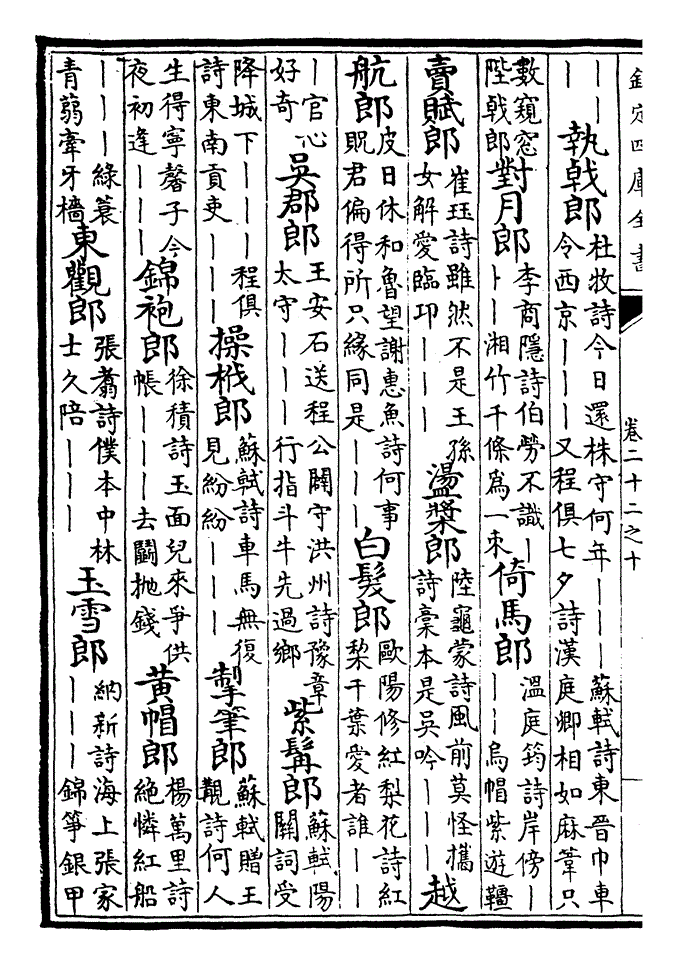 欽定四庫全書
卷二十二之十
｜｜
｜
執戟郎
杜牧詩今日還株守何年｜｜｜蘇軾詩東晉巾車
令西京｜｜｜又程俱七夕詩漢庭卿相如麻葦只
數窺窓
陛戟郎
對月郎
李商隱詩伯勞不識｜
｜｜湘竹千條為一束
倚馬郎
溫庭筠詩岸傍｜
｜｜烏帽紫遊韁
賣賦郎
崔珏詩雖然不是王孫
女解愛臨卭｜｜｜
盪槳郎
陸龜蒙詩風前莫怪攜
詩藁本是吳吟｜｜｜
越
航郎
皮日休和魯望謝惠魚詩何事
貺君偏得所只緣同是｜｜｜
白髮郎
歐陽修紅梨花詩紅
棃千葉愛者誰｜｜
｜官心
好奇
吳郡郎
王安石送程公闢守洪州詩豫章
太守｜｜｜行指斗牛先過鄉
紫髯郎
蘇軾陽
關詞受
降城下｜｜｜
詩東南貢吏｜｜｜程俱
操栰郎
蘇軾詩車馬無復
見紛紛｜｜｜
掣筆郎
蘇軾贈王
覯詩何人
生得寧馨子今
夜初逢｜｜｜
錦袍郎
徐積詩玉面兒來爭供
帳｜｜｜去鬭抛錢
黃帽郎
楊萬里詩
絶憐紅船
｜｜｜綠蓑
青蒻牽牙檣
東觀郎
張翥詩僕本中林
士久陪｜｜｜
玉雪郎
納新詩海上張家
｜｜｜錦箏銀甲